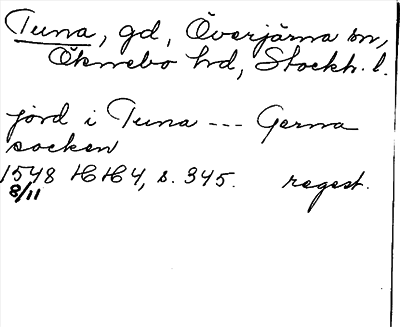 Tuna, gd, Överjärna sn,
Öknebo hd, Stockh. l.
jord i Tuna --- Gerna
socken
1548 HH4, s. 345. regest.
8/11